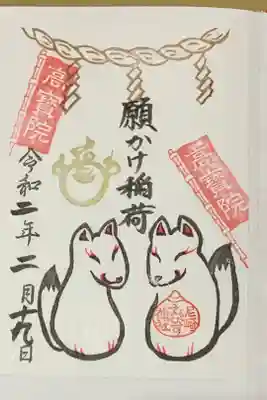 願かけ稲荷
高寳院
高寳院
令和二年二月十九日